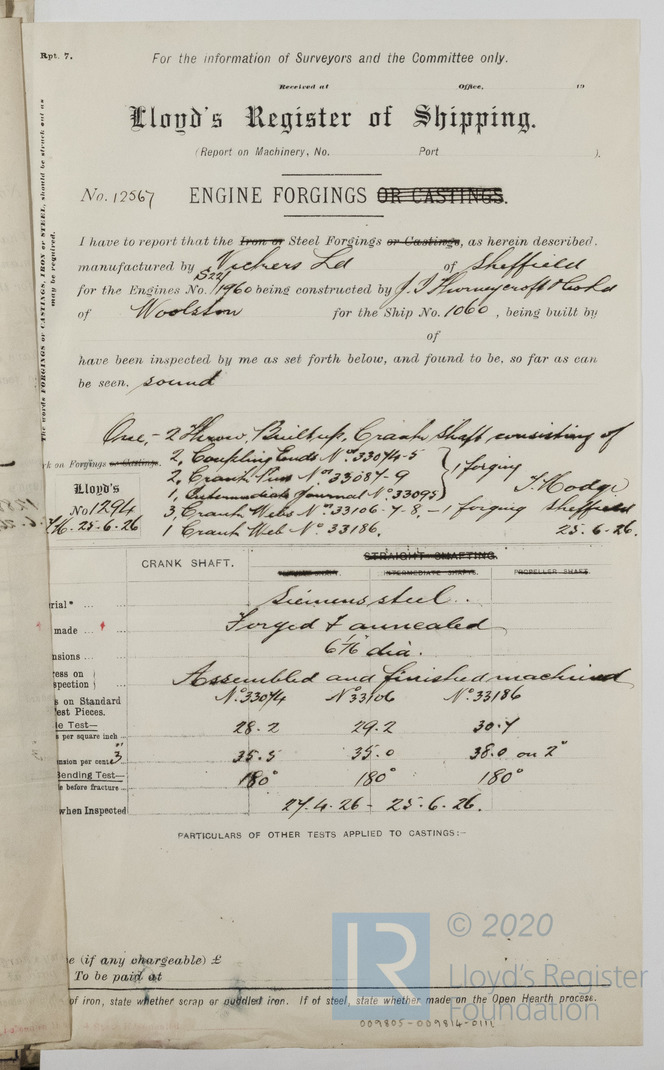 Rpt. 7.
For the information of Surveyors and the Committee only.
Received at Office, 19
Lloyd's Register of Shipping.
(Report on Machinery, No. Port ).
The words FORGINGS or CASTINGS, IRON or STEEL, should be struck out as
may be required.
No. 12567 ENGINE FORGINGS OR CASTINGS.
I have to report that the Iron or Steel Forgings or Castings, as herein described.
manufactured by Vickers Ld of Sheffield
S22
for the Engines No. 1960 being constructed by J. I. Thorneycroft & Co Ld
of Woolston for the Ship No. 1060, being built by
of
have been inspected by me as set forth below, and found to be, so far as can
be seen, sound
One,- 2 Throw, Built up, Crank Shaft consisting of
rk on Forgings or Castings.
2, Coupling Ends Nos 33074-5
2, Crank Pins Nos 33087-9
1, Intermediate Journal No. 33095
} 1 forging
3, Crank Webs Nos 33106-7-8, - 1 forging
1 Crank Web No. 33186.
Lloyd's
No 1294
J.H. 25-6-26
J. Hodge
Sheffield
25.6.26.
CRANK SHAFT. STRAIGHT SHAFTING.
INTERMEDIATE SHAFTS. PROPELLER SHAFT.
erial* Siemens steel.
made Forged & annealed
nsions 6 1/16 dia.
ress on
spection Assembled and finished machined
s on Standard
est Pieces. No. 33074 No 33106 No. 33186
le Test—
s per square inch 28.2 29.2 30.7
nsion per cent 3" 35.5 35.0 38.0 on 2"
Bending Test—
e before fracture 180° 180° 180°
when Inspected 27.4.26 - 25.6.26.
PARTICULARS OF OTHER TESTS APPLIED TO CASTINGS:—
e (if any chargeable) £
To be paid at
of iron, state whether scrap or puddled iron. If of steel, state whether made on the Open Hearth process.
LR
© 2020
Lloyd's Register
Foundation
009805-009814-0111